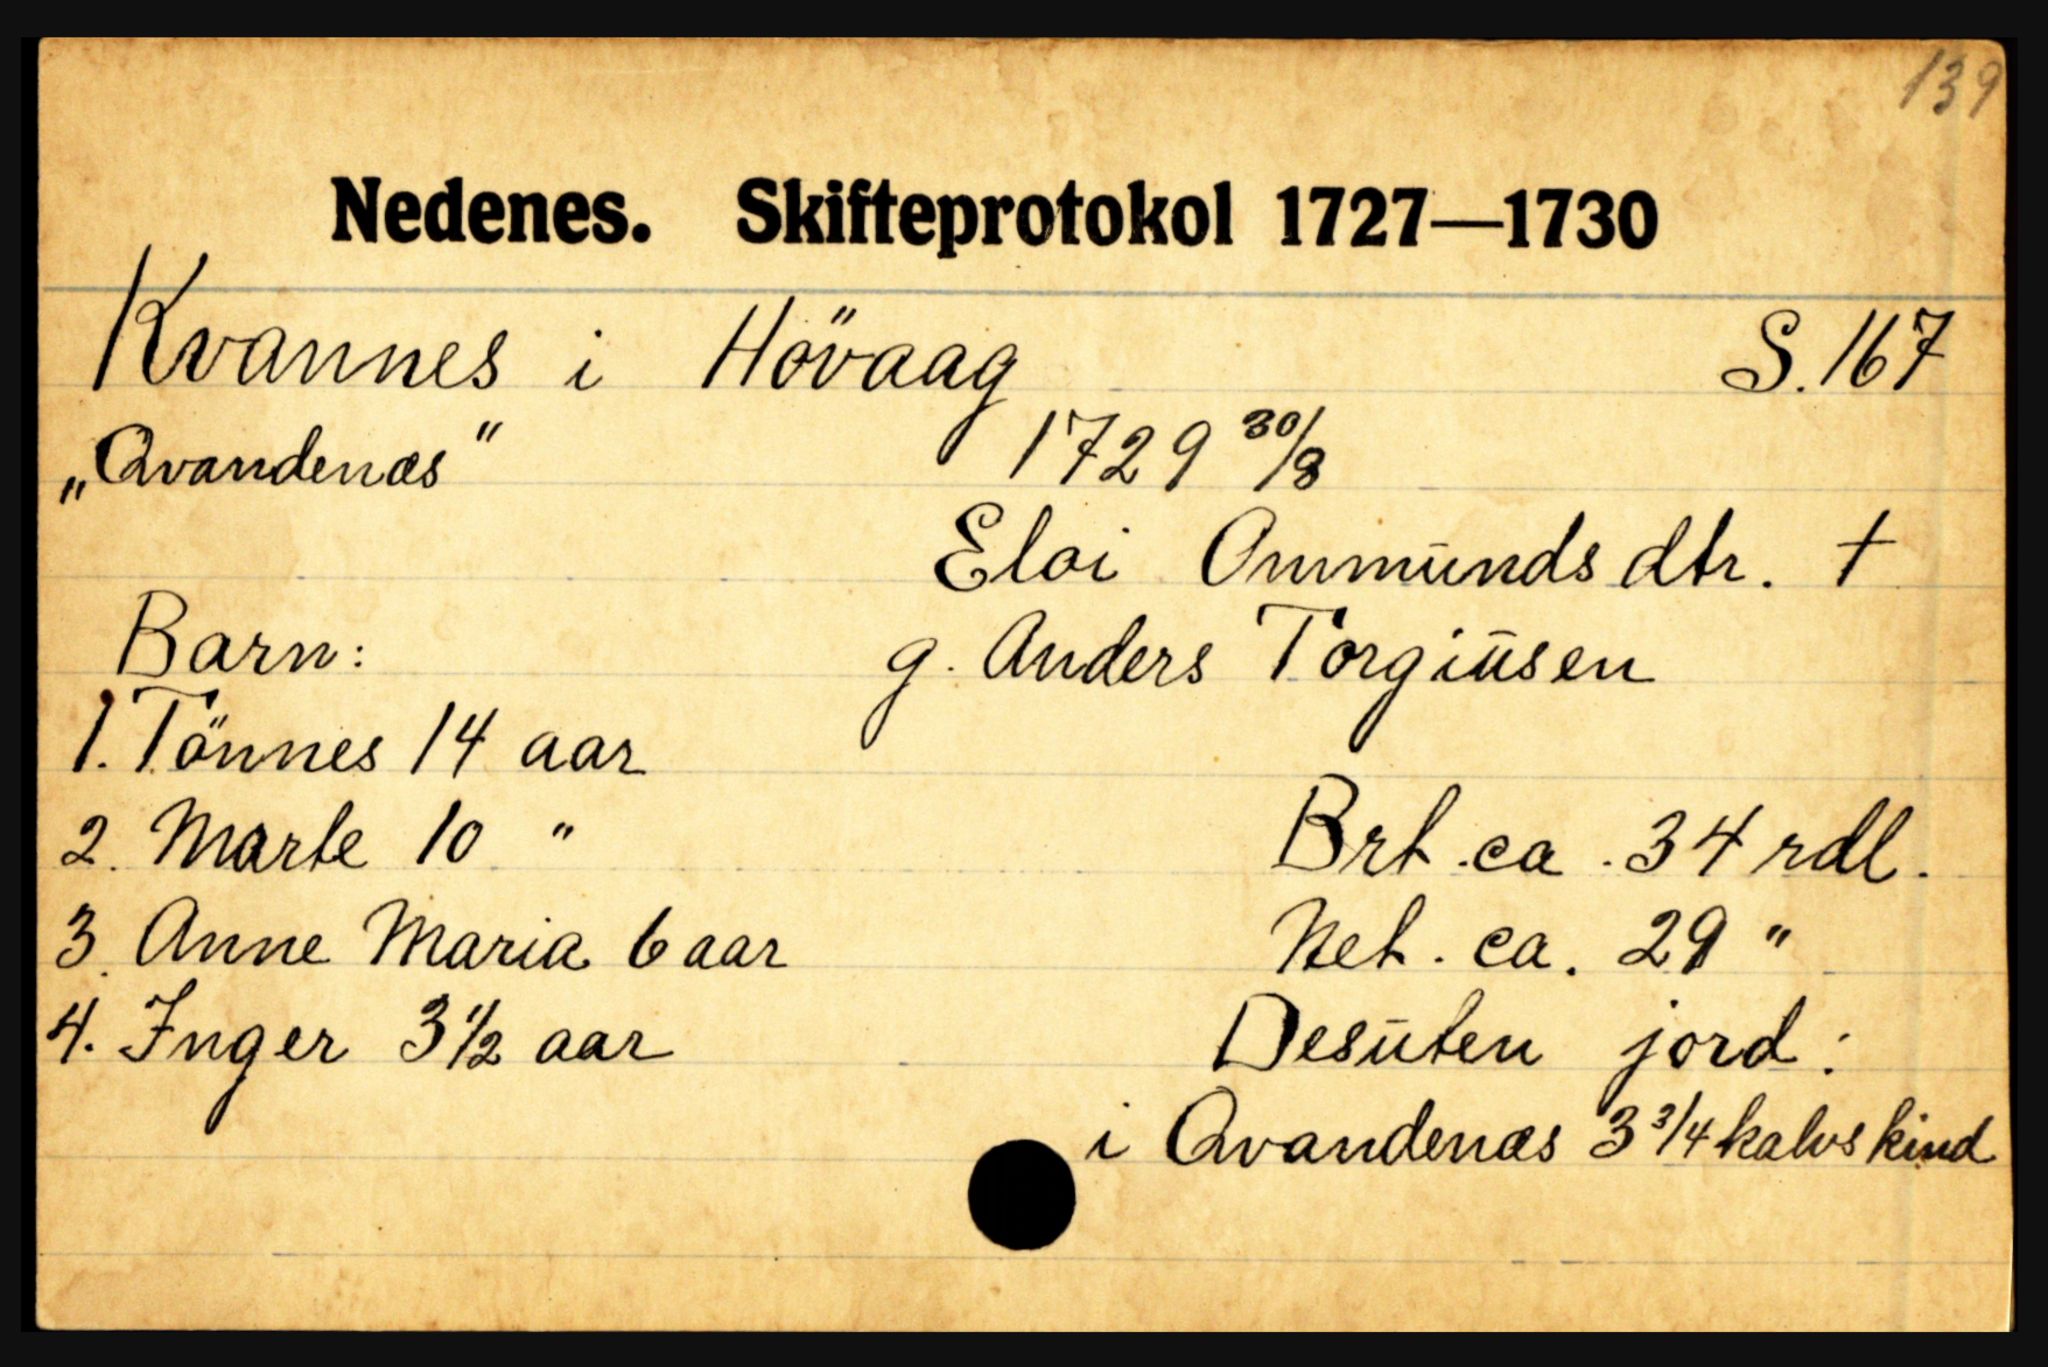 139
Nedenes. Skifteprotokol 1727—1730
Kvannes i Hövaag S. 167
„Qvandenæs" 1729 30/8
Eloi Ommundsdtr. †
Barn: g. Anders Torgiusen
1. Tönnes 14 aar
2. Marte 10 " Brt. ca. 34 rdl.
3. Anne Maria 6 aar Net. ca. 29 "
4. Inger 3 1/2 aar Desuten jord:
i Qvandenæs 3 3/4 kalvskind